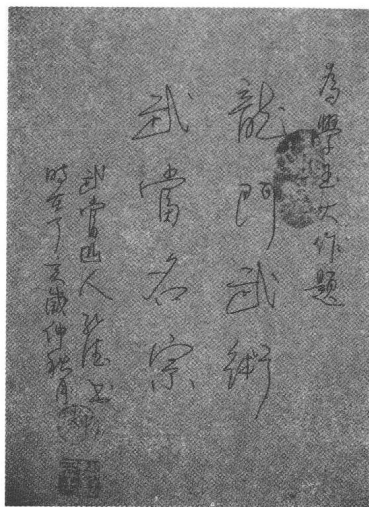 為學玉大作題
龍門武術
武當名宗
武當山人
時在丁亥歲仲秋月